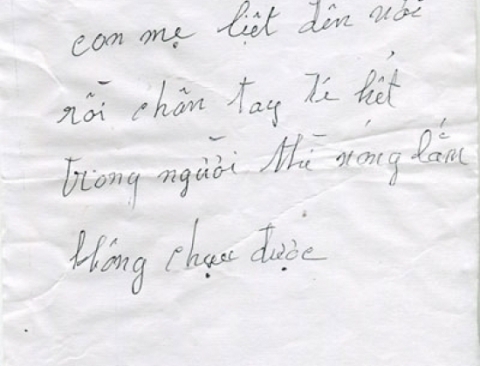 con mẹ liệt đến nơi
rồi chân tay tê hết
trong người thì nóng lắm
không chịu được